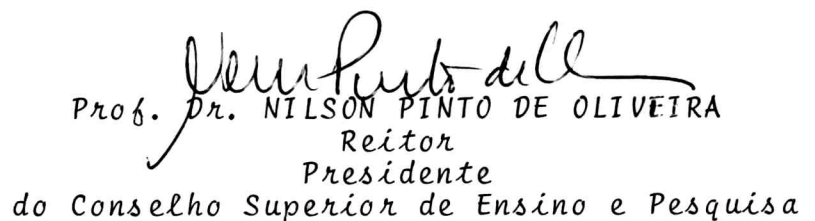 Prof. Dr. NILSON PINTO DE OLIVEIRA
Reitor
Presidente
do Conselho Superior de Ensino e Pesquisa